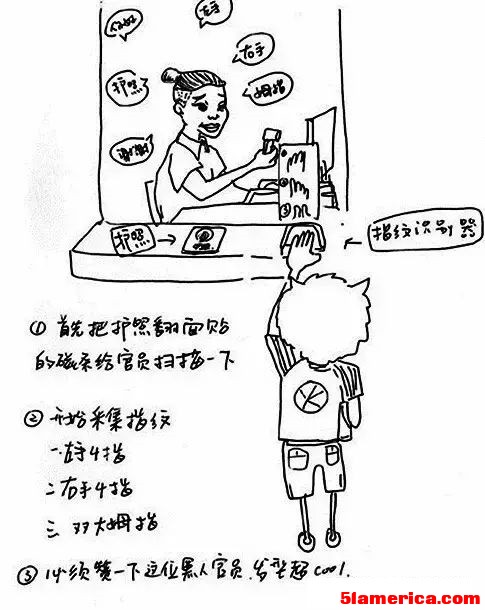 你好
左手
右手
护照
姆指
谢谢
①
②
③
护照
指纹识别器
① 首先把护照翻面贴
的磁条给官员扫描一下
② 开始采集指纹
一.左手4指
二.右手4指
三.双大姆指
③ 必须赞一下这位黑人官员,发型超cool.
5lamerica.com